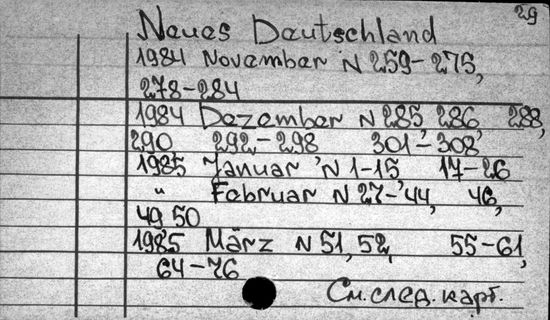 29
Neues Deutschland
1984 November N 259-275,
278-284
1984 Dezember N 285 286 288,
290 292-298 301-308
1985 Januar N 1-15 17-26
" Februar N 27-44, 46,
49 50
1985 März N 51, 52, 55-61,
64-76
См. след. карт.